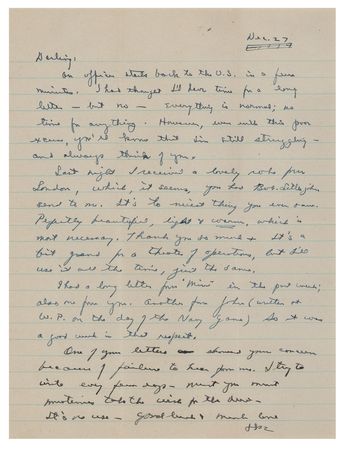 Dec. 27
Darling;
An officer starts back to the U.S. in a few
minutes. I had thought I'd have time for a long
letter — but no — everything is normal; no
time for anything. However, even with this poor
excuse, you'll know that I'm still struggling —
and always think of you.
Last night I received a lovely robe from
London, which, it seems, you had
sent to me. It's the nicest thing you ever saw.
Perfectly beautiful, light & warm, which is
most necessary. Thank you so much — It's a
bit grand for a theater of operations, but I'll
use it all the time, just the same.
I had a long letter from "Min" in the past week;
also one from you. Another from John (written at
W.P. on the day of the Navy game) so it was
a good week in that respect.
One of your letters showed your concern
because of failure to hear from me. I try to
write every few days —
sometimes take the wish for the deed —
It's no use — Good luck & much love